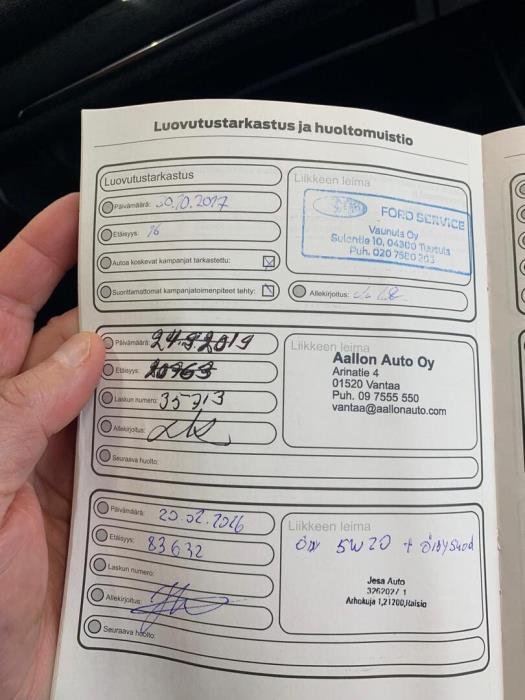 Luovutustarkastus ja huoltomuistio
Luovutustarkastus
Päivämäärä: 30.10.2017
Etäisyys: 16
Autoa koskevat kampanjat tarkastettu:
Suorittamattomat kampanjatoimenpiteet tehty:
Liikkeen leima
FORD SERVICE
Vaunula Oy
Sulantie 10, 04300 Tuusula
Puh. 020 7580 203
Allekirjoitus:
Päivämäärä: 24.9.2019
Etäisyys: 20963
Laskun numero: 35713
Allekirjoitus:
Seuraava huolto:
Liikkeen leima
Aallon Auto Oy
Arinatie 4
01520 Vantaa
Puh. 09 7555 550
vantaa@aallonauto.com
Päivämäärä: 20.02.2026
Etäisyys: 83632
Laskun numero:
Allekirjoitus:
Seuraava huolto:
Liikkeen leima
5W20 +
Jesa Auto
326202/ 1
Arhokuja 1,21200,Raisio